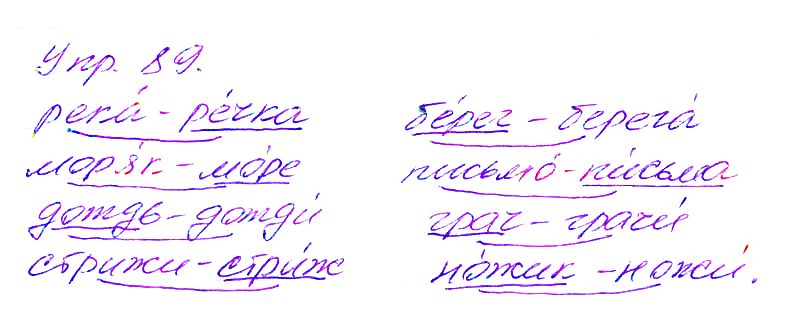 Упр. 89.
река́ - ре́чка
моря́к - мо́ре
дождь - дожди́
стрижи - стри́ж
бе́рег - берега́
письмо́ - пи́сьма
грач - грачи́
но́жик - ножи́.